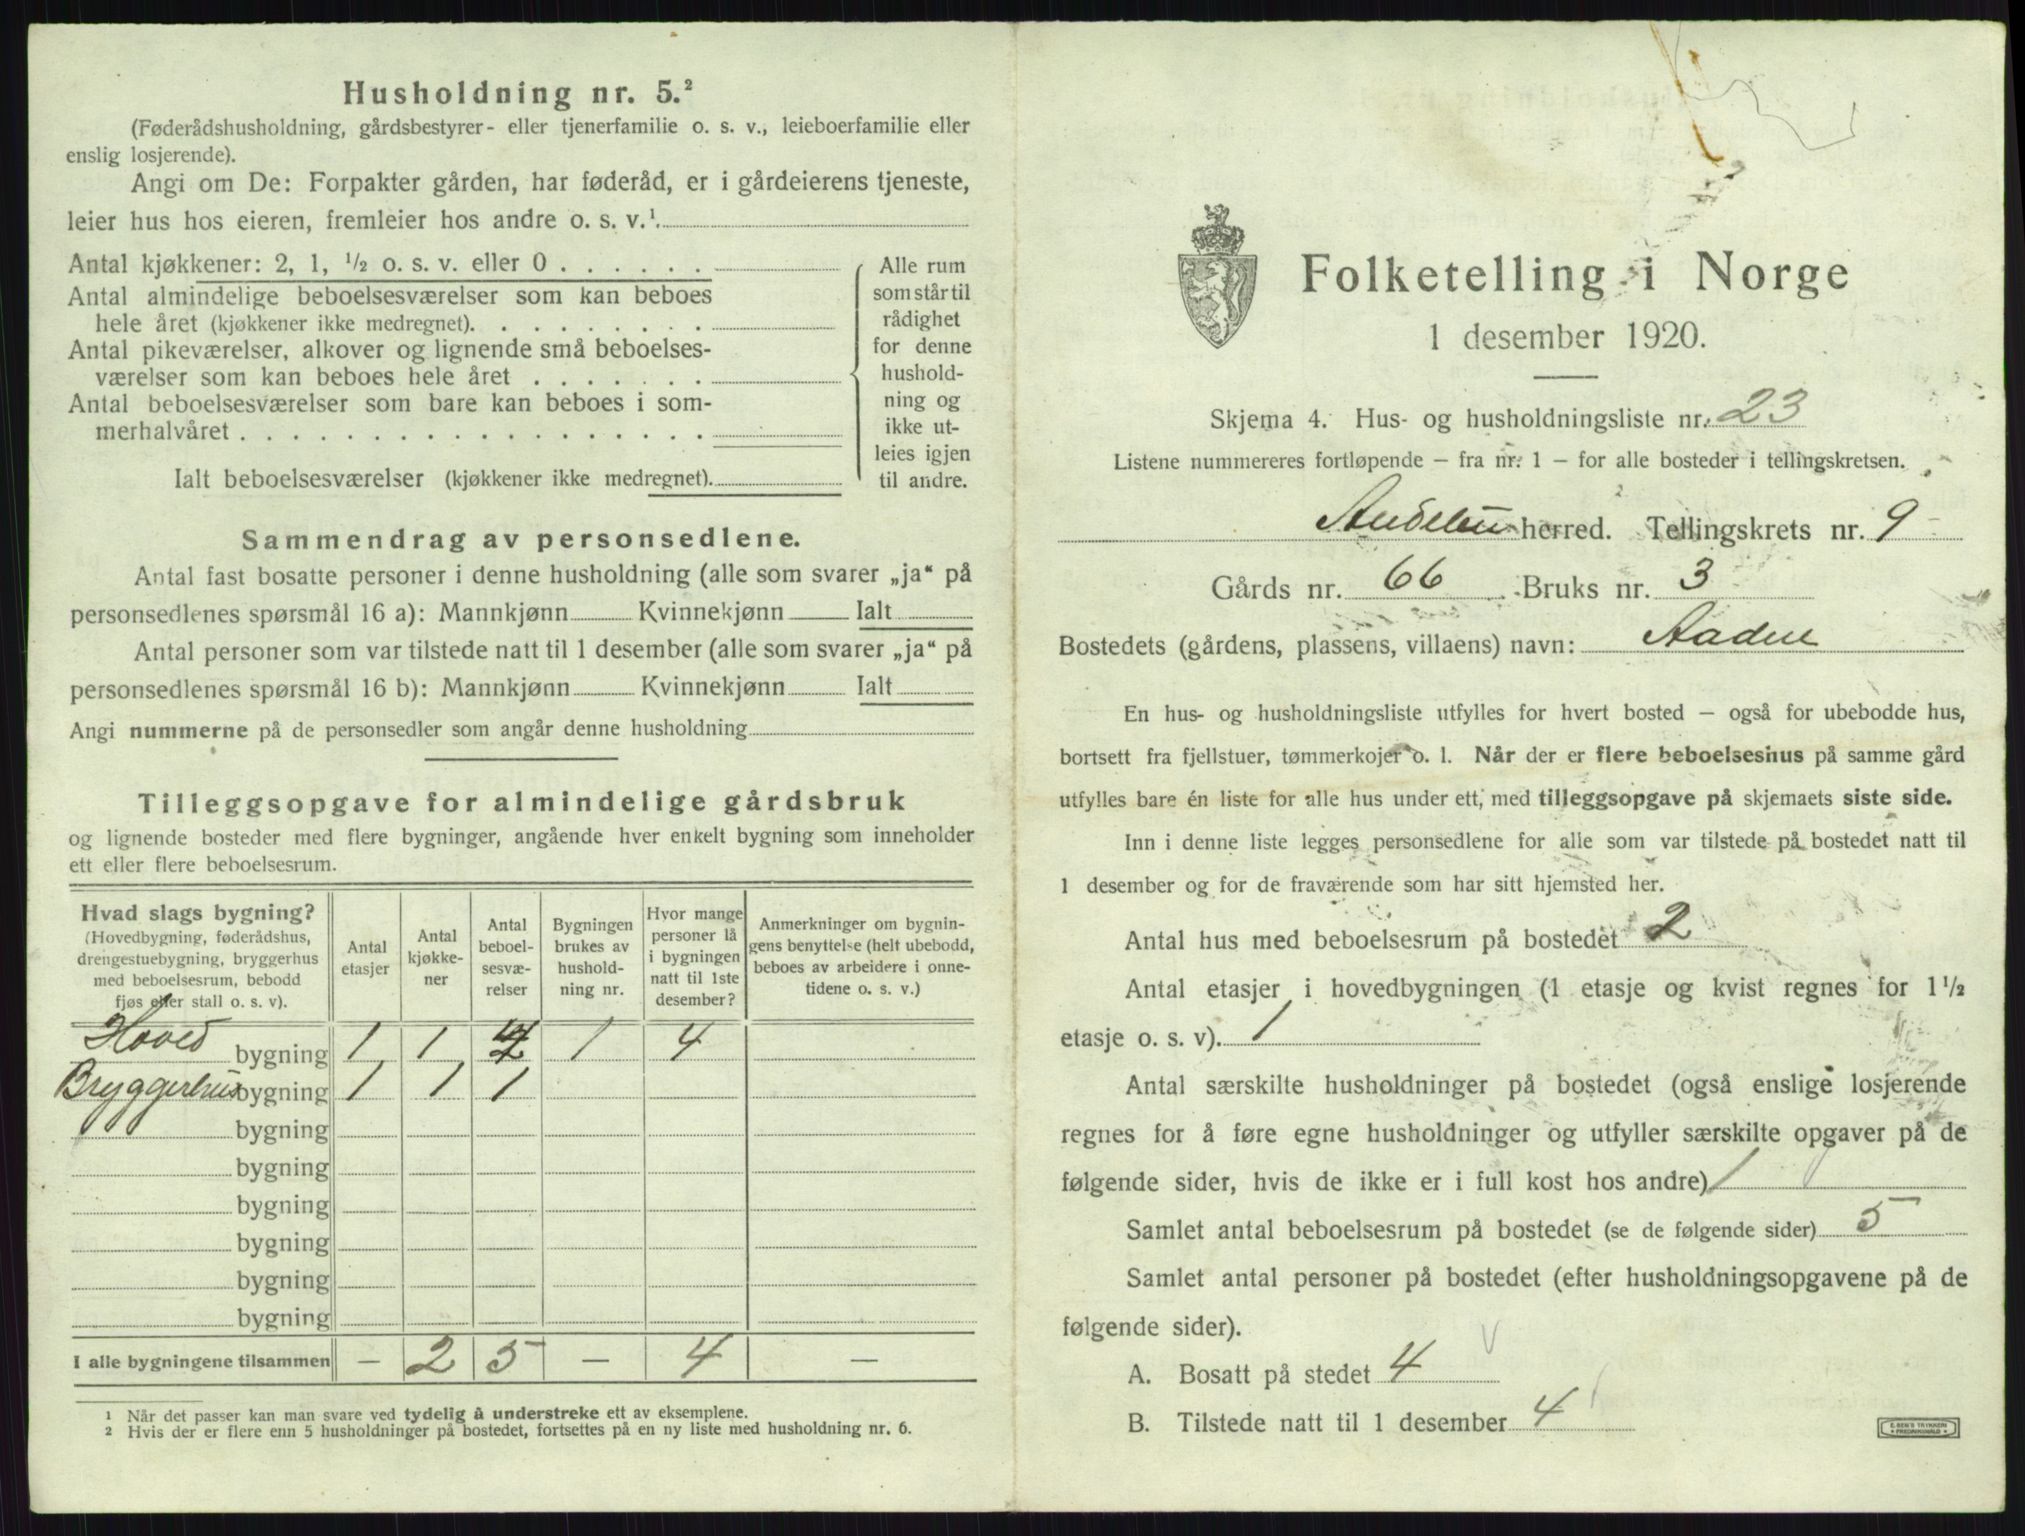 Husholdning nr. 5.²
(Føderådshusholdning, gårdsbestyrer- eller tjenerfamilie o. s. v., leieboerfamilie eller
enslig losjerende).
Angi om De: Forpakter gården, har føderåd, er i gårdeierens tjeneste,
leier hus hos eieren, fremleier hos andre o. s. v.¹.
Antal kjøkkener: 2, 1, ½ o. s. v. eller 0 . . . . . .
Antal almindelige beboelsesværelser som kan beboes
hele året (kjøkkener ikke medregnet). . . . . . . . .
Antal pikeværelser, alkover og lignende små beboelses-
værelser som kan beboes hele året . . . . . . .
Antal beboelsesværelser som bare kan beboes i som-
merhalvåret . . . . . . . . . . . . . . . . . .
Ialt beboelsesværelser (kjøkkener ikke medregnet).
Alle rum
som står til
rådighet
for denne
hushold-
ning og
ikke ut-
leies igjen
til andre.
Sammendrag av personsedlene.
Antal fast bosatte personer i denne husholdning (alle som svarer „ja“ på
personsedlenes spørsmål 16 a): Mannkjønn Kvinnekjønn Ialt
Antal personer som var tilstede natt til 1 desember (alle som svarer „ja“ på
personsedlenes spørsmål 16 b): Mannkjønn Kvinnekjønn Ialt
Angi nummerne på de personsedler som angår denne husholdning
Tilleggsopgave for almindelige gårdsbruk
og lignende bosteder med flere bygninger, angående hver enkelt bygning som inneholder
ett eller flere beboelsesrum.
Hvad slags bygning?
(Hovedbygning, føderådshus,
drengestuebygning, bryggerhus
med beboelsesrum, bebodd
fjøs eller stall o. s. v).
Antal
etasjer
Antal
kjøkke-
ner
Antal
beboel-
sesvæ-
relser
Bygningen
brukes av
hushold-
ning nr.
Hvor mange
personer lå
i bygningen
natt til 1ste
desember?
Anmerkninger om bygnin-
gens benyttelse (helt ubebodd,
beboes av arbeidere i onne-
tidene o. s. v.)
Hoved bygning 1 1 4 1 4
Bryggerhus bygning 1 1 1
bygning
bygning
bygning
bygning
bygning
bygning
I alle bygningene tilsammen — 2 5 — 4 —
¹ Når det passer kan man svare ved tydelig å understreke ett av eksemplene.
² Hvis der er flere enn 5 husholdninger på bostedet, fortsettes på en ny liste med husholdning nr. 6.
Folketelling i Norge
1 desember 1920.
Skjema 4. Hus- og husholdningsliste nr. 23
Listene nummereres fortløpende — fra nr. 1 — for alle bosteder i tellingskretsen.
Andebu herred. Tellingskrets nr. 9
Gårds nr. 66 Bruks nr. 3
Bostedets (gårdens, plassens, villaens) navn: Aadne
En hus- og husholdningsliste utfylles for hvert bosted — også for ubebodde hus,
bortsett fra fjellstuer, tømmerkojer o. l. Når der er flere beboelseshus på samme gård
utfylles bare én liste for alle hus under ett, med tilleggsopgave på skjemaets siste side.
Inn i denne liste legges personsedlene for alle som var tilstede på bostedet natt til
1 desember og for de fraværende som har sitt hjemsted her.
Antal hus med beboelsesrum på bostedet 2
Antal etasjer i hovedbygningen (1 etasje og kvist regnes for 1½
etasje o. s. v). 1
Antal særskilte husholdninger på bostedet (også enslige losjerende
regnes for å føre egne husholdninger og utfyller særskilte opgaver på de
følgende sider, hvis de ikke er i full kost hos andre) 1
Samlet antal beboelsesrum på bostedet (se de følgende sider) 5
Samlet antal personer på bostedet (efter husholdningsopgavene på de
følgende sider).
A. Bosatt på stedet 4
B. Tilstede natt til 1 desember 4